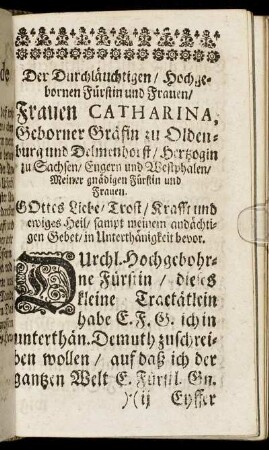 Der Durchläuchtigen / Hochge-
bornen Fürstin und Frauen /
Frauen CATHARINA,
Geborner Gräfin zu Olden-
burg und Delmenhorst / Hertzogin
zu Sachsen / Engern und Westphalen /
Meiner gnädigen Fürstin und
Frauen.
GOttes Liebe / Trost / Krafft und
ewiges Heil / sampt meinem andächti-
gen Gebet / in Unterthänigkeit bevor.
DUrchl. Hochgebohr-
ne Fürstin / dieses
kleine Tractätlein
habe E. F. G. ich in
unterthän. Demuth zuschrei-
ben wollen / auf daß ich der
gantzen Welt E. Fürstl. Gn.
)(ij Eyffer